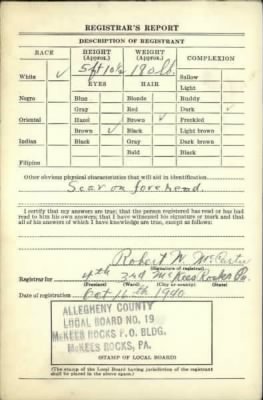 REGISTRAR'S REPORT
DESCRIPTION OF REGISTRANT
RACE HEIGHT (Approx.) WEIGHT (Approx.) COMPLEXION
White ✓ 5 ft 10½ 180 lb. Sallow
EYES HAIR Light
Negro Blue Blonde Ruddy
Gray Red Dark ✓
Oriental Hazel Brown ✓ Freckled
Brown ✓ Black Light brown
Indian Black Gray Dark brown
Bald Black
Filipino
Other obvious physical characteristics that will aid in identification
Scar on forehead.
I certify that my answers are true; that the person registered has read or has had
read to him his own answers; that I have witnessed his signature or mark and that
all of his answers of which I have knowledge are true, except as follows:
Robert W. McCarter
(Signature of registrar)
Registrar for 4th 3rd McKees Rocks Pa.
(Precinct) (Ward) (City or county) (State)
Date of registration Oct 16th 1940
ALLEGHENY COUNTY
LOCAL BOARD NO. 19
McKEES ROCKS P.O. BLDG.
McKEES ROCKS, PA.
(STAMP OF LOCAL BOARD)
(The stamp of the Local Board having jurisdiction of the registrant
shall be placed in the above space.)